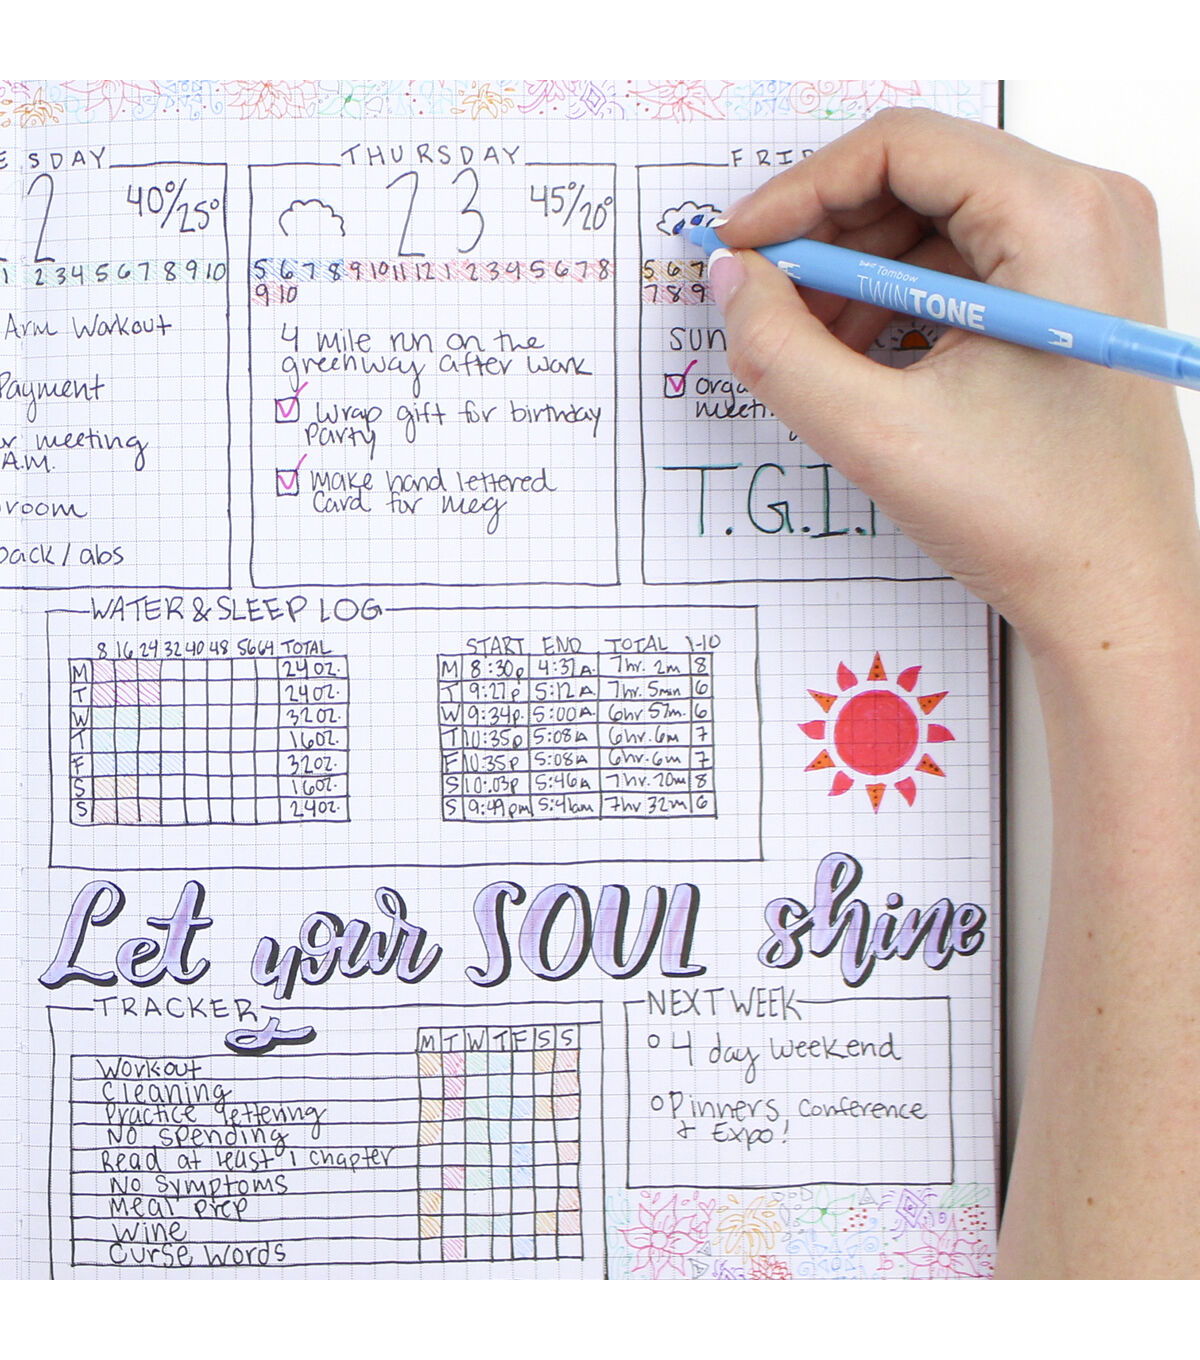 SDAY
2
40°/25°
1 2 3 4 5 6 7 8 9 10
Arm Workout
Payment
meeting
A.M.
room
back/abs
THURSDAY
23
45°/20°
5 6 7 8 9 10 11 12 1 2 3 4 5 6 7 8
9 10
4 mile run on the
greenway after work
Wrap gift for birthday
party
Make hand lettered
Card for Meg
5 6 7
7 8 9
T.G.I.
Tombow
TWINTONE
WATER & SLEEP LOG
8 16 24 32 40 48 56 64 TOTAL
M 24 oz.
T 24 oz.
W 32 oz.
T 16 oz.
F 32 oz.
S 16 oz.
S 24 oz.
START END TOTAL 1-10
M 8:30p 4:37A 7hr. 2m 8
T 9:27p 5:12A 7hr. 5min 6
W 9:34p. 5:00A 6hr 57m. 6
T 10:35p 5:08A 6hr. 6m 7
F 10:35p 5:08A 6hr. 6m 7
S 10:03p 5:46A 7hr. 20m 8
S 9:49pm 5:41am 7hr 32m 6
Let your SOUL shine
TRACKER
M T W T F S S
Workout
Cleaning
Practice lettering
No spending
Read at least 1 chapter
No symptoms
Meal prep
Wine
Curse Words
NEXT WEEK
4 day weekend
Pinners Conference
+ Expo!